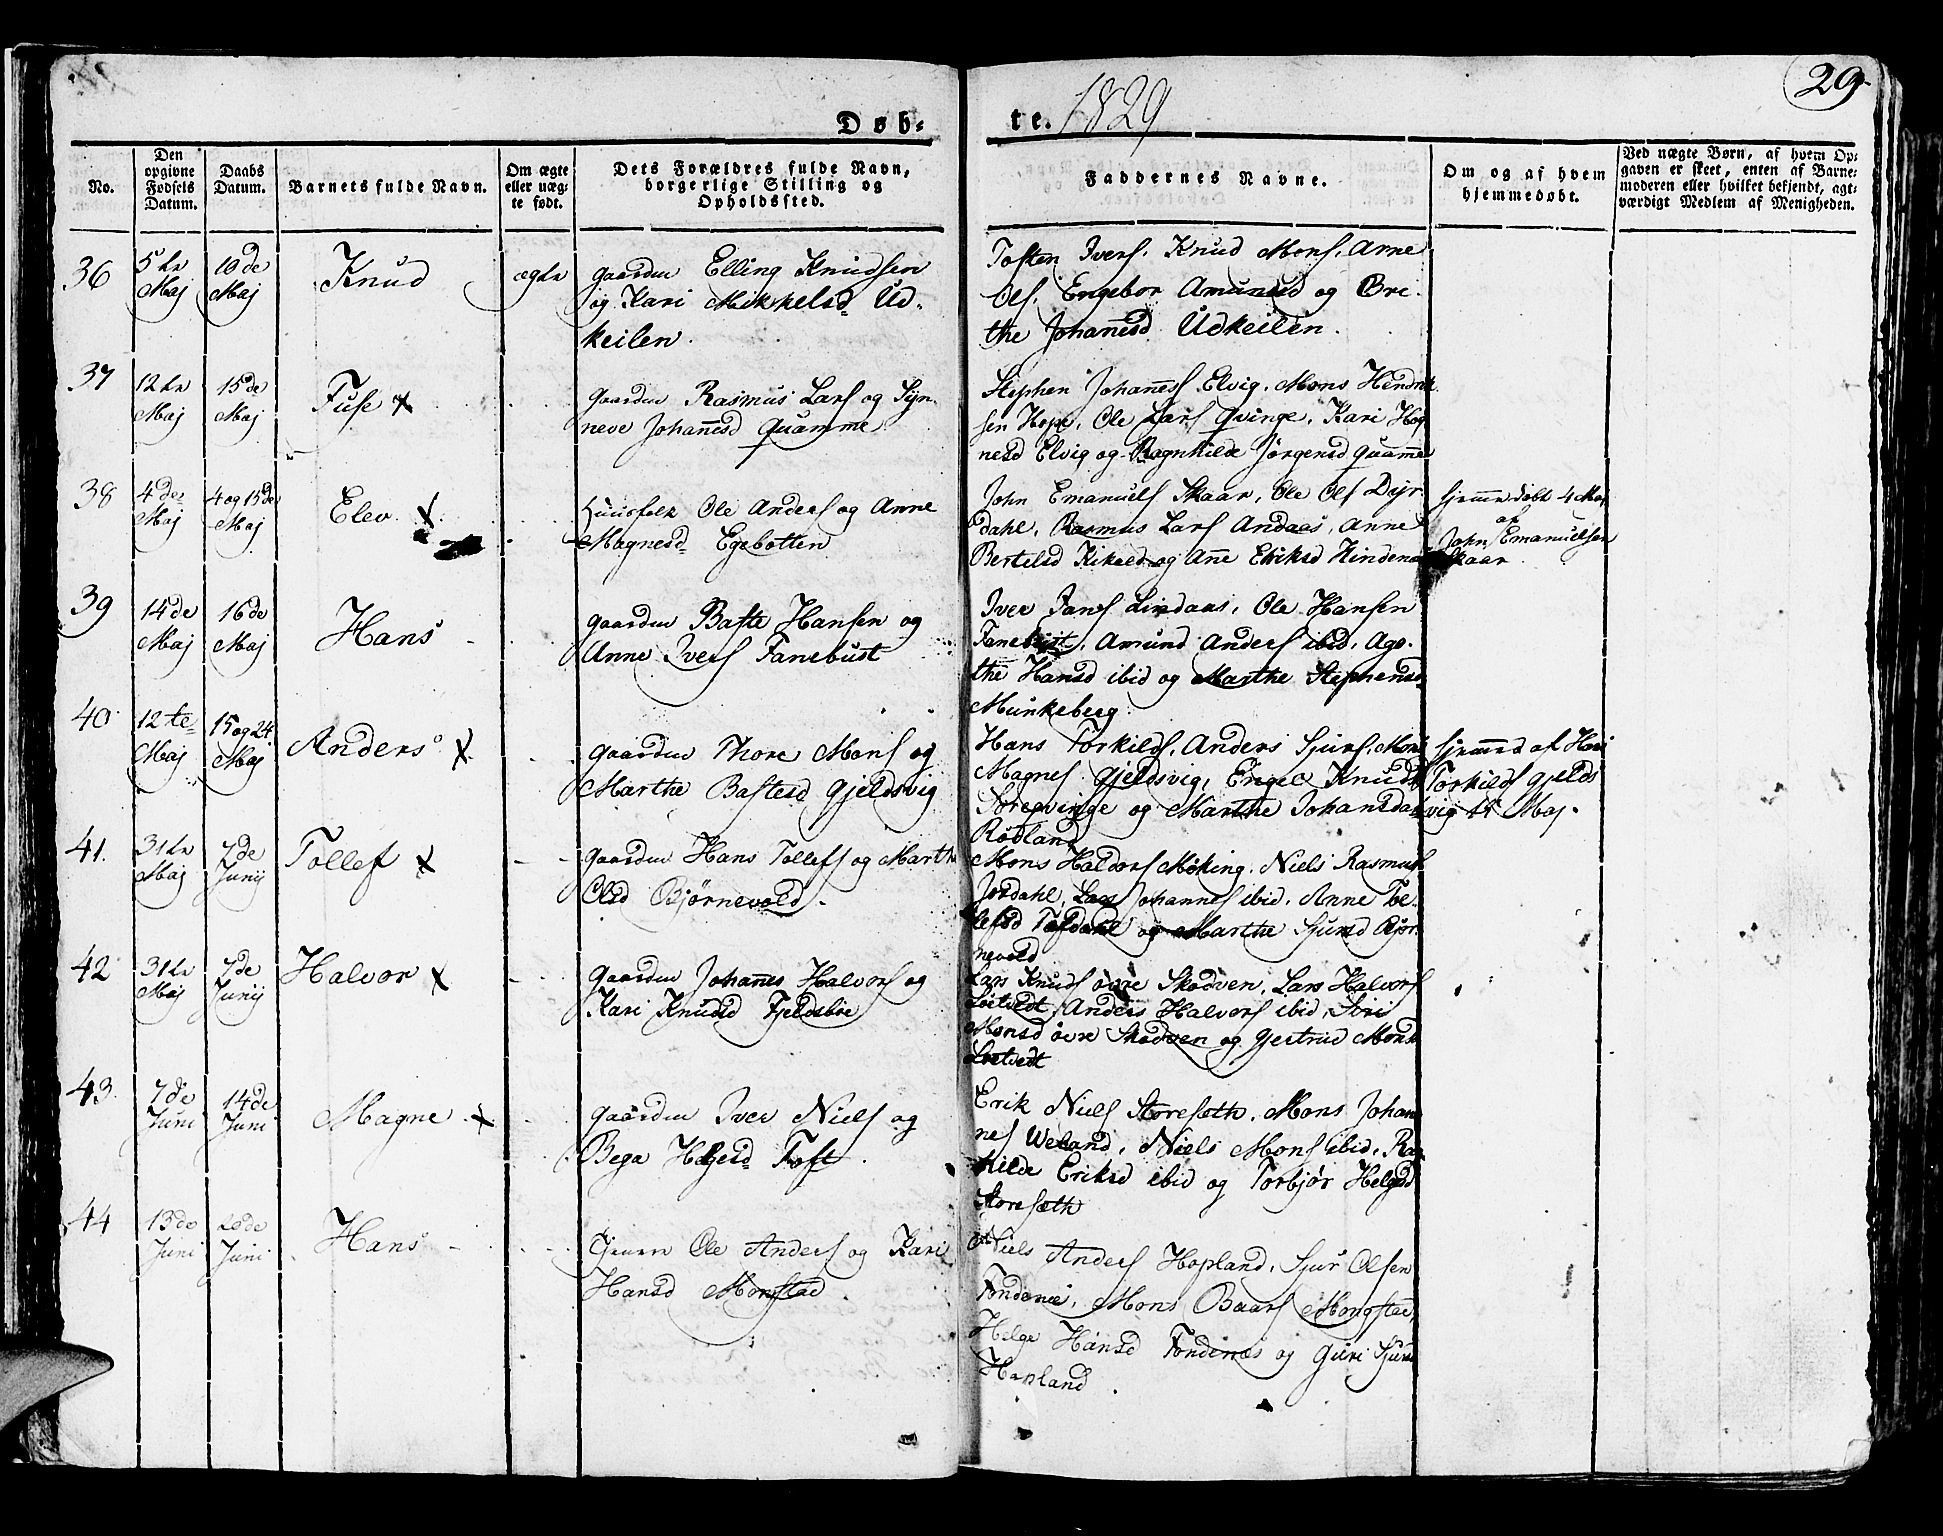 29.
Døb-
te. 1829
No.
Den
opgivne
Fødsels
Datum.
Daabs
Datum.
Barnets fulde Navn.
Om ægte
eller uæg-
te født.
Dets Forældres fulde Navn,
borgerlige Stilling og
Opholdssted.
Faddernes Navne.
Om og af hvem
hjemmedøbt.
Ved uægte Børn, af hvem Op-
gaven er skeet, enten af Barne-
moderen eller hvilket bekjendt, agt-
værdigt Medlem af Menigheden.
36
5te
Maj
10de
Maj
Knud
ægte
Gaardm Elling Knudsen
og Kari Mikkelsd Ud-
keilen.
Tosten Ivers. Knud Mons. Arne
Ols. Engebor Amunsd og Bri-
the Johannesd Udkeilen.
37
12te
Maj
15de
Maj
Fuse x
Gaardm Rasmus Lars og Syn-
neve Johannesd Quamme
Stephen Johannes Elvig. Mons Hendrik
sen Hope, Ole Lars Qvinge, Kari Hag
nesd Elvig og Ragnhilde Jørgensd Quamme
38
4de
Maj
4 og 15de
Maj
Elev. x
Huusfolk Ole Anders og Anne
Magnesd Egebotten
John Emanuels Skaar, Ole Ols Dyr-
dahl, Rasmus Lars Andaas, Anne
Bertelsd og Anne Eriksd Hindenæs
hjemmedøbt 4 Maj
af
John Emanuelsen
Skaar
39
14de
Maj
16de
Maj
Hans
Gaardm Baste Hansen og
Anne Ivers Fanebust
Iver Jans Lindaas, Ole Hansen
Fanebust, Amund Anders ibid, Aga-
the Hansd ibid og Marthe Stephensd
Munkeberg
40
12te
Maj
15 og 24
Maj
Anders x
Gaardm Thore Mons og
Marthe Bastesd Gjeldsvig
Hans Torkilds, Anders Sjurs, Mons
Magnes Gjeldsvig, Engel Knudsd
Noreqvinge og Marthe Johansdat
Rødland
hjemmed af Hans
Torkilds Gjelds
vig 15 Maj.
41.
31te
Maj
7de
Junij
Tollef x
Gaardm Hans Tollefs og Marthe
Olsd Bjørnevold.
Mons Haldors Møking. Niels Rasmus
Jordahl, Lars Johannes ibid, Anne To-
lefsd Tofdahl og Marthe Sjursd Bjør-
nevold
42
31te
Maj
7de
Junij
Halvor x
Gaardm Johannes Halvors og
Kari Knudsd Fjeldsbøe
Lars Knuds øvre Skodven, Lars Halvors
Loetvedt, Anders Halvors ibid, Siri
Monsd øvre Skodven og Gjertrud Monsd
Loetvedt
43.
7de
Juni
14de
Juni
Magne x
Gaardm Iver Niels og
Bega Helgesd Toft.
Erik Niels Storesæth. Mons Johan
nes Weland, Niels Mons ibid, Ra
hilde Eriksd ibid og Torbjør Helgesd
Storesæth
44
13de
Juni
20de
Juni
Hans
Ole Anders og Kari
Hansd Mongstad.
Niels Anders Hopland, Sjur Olsen
Fondenæs, Mons Baars Mongstad,
Helge Hansd Fondenæs og Guri Sjursd
Hopland.